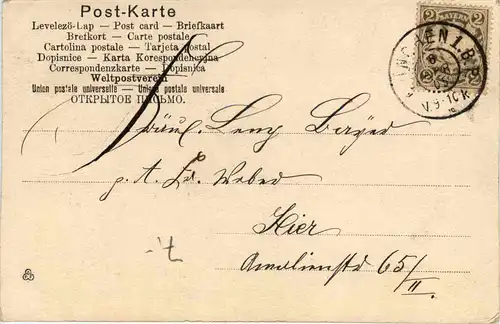 Post-Karte
Levelező-Lap — Post card — Briefkaart
Brefkort — Carte postale
Cartolina postale — Tarjeta postal
Dopisnice — Karta Korespondencyjna
Correspondenzkarte — Dopisnica
Weltpostverein
Union postale universelle — Union postale universelle
ОТКРЫТОЕ ПИСЬМО.
BAYERN
2 2
MÜNCHEN I.B.
V.9-10
Fräul. Leny Bayer
p. A. Fr. Weber
Hier
Amalienstr 65/II
7.-